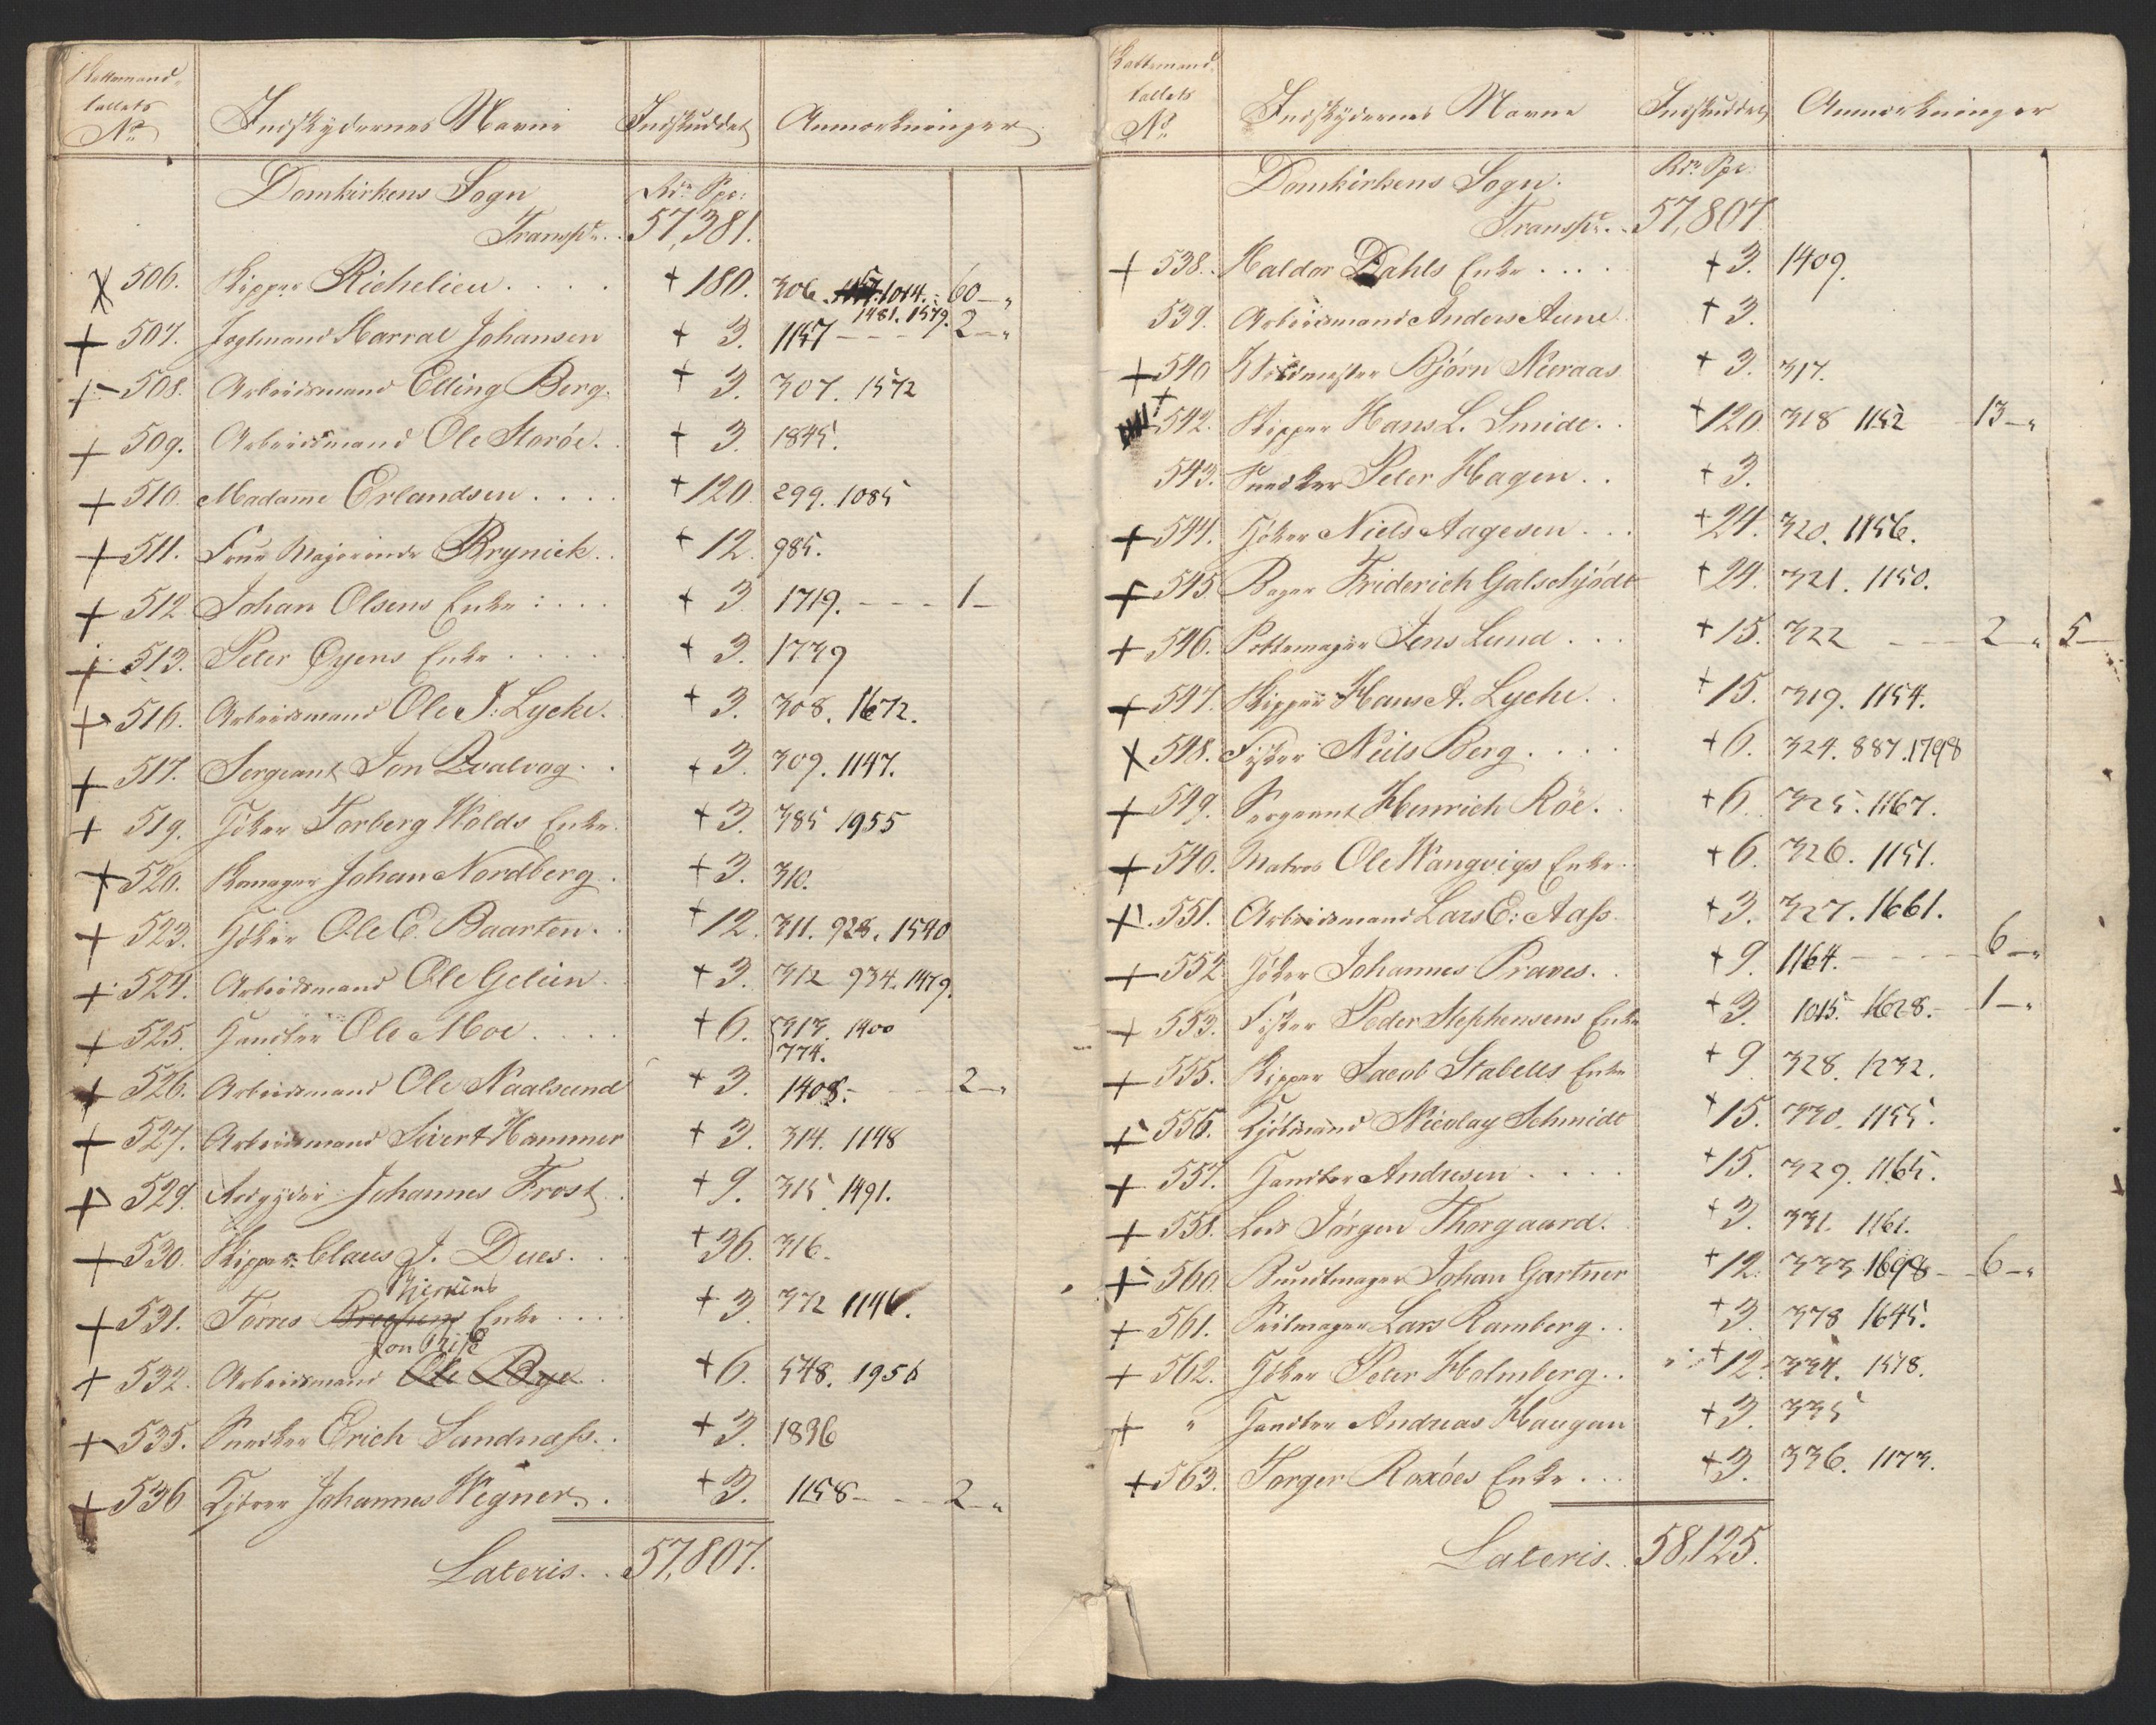 Skattemand-
tallets
No
Indskydernes Navne
Indskuddet
Anmærkninger
Domkirkens Sogn
Rdr Spe:
Transpt. . 57,381.
506. Skipper Richelieu . . . . + 180. 306. 1014. 60 –
1481. 1579.
507. Harral Johansen + 3. 1157 – – – 2 –
508. Arbeidsmand Elling Berg. + 3. 307. 1572
509. Arbeidsmand Ole Storøe. + 3. 1845.
510. Madame Erlandsen . . . . + 120. 299. 1085
511. Frue Majorinde Brynick. . + 12. 985.
512. Johan Olsens Enke : . . . + 3. 1719. – – – 1 –
513. Peter Øyens Enke . . . . . + 3. 1739
516. Arbeidsmand Ole J: Lycke. + 3. 308. 1672.
517. Sergeant Jon Qvalvog . . + 3. 309. 1147.
519. Høker Torberg Wolds Enke. + 3. 385 1955
520. Skomager Johan Nordberg. + 3. 310.
523. Høker Ole E. Baarten. . + 12. 311. 928. 1540
524. Arbeidsmand Ole Gelein. + 3. 312 934. 1479.
525. Handler Ole Moe . . . . + 6. 313. 1400
774.
526. Arbeidsmand Ole Naalsund + 3. 1408. – – 2 –
527. Arbeidsmand Sivert Hammer + 3. 314. 1148
529. Johannes Frost . + 9. 315. 1491.
530. Skipper Claus J. Dues. . + 36. 316.
531. Torres Enke . . . . + 3. 372 1146.
532. Arbeidsmand Ole Bye . + 6. 548. 1956
535. Snedker Erich Sundnass. . + 3. 1836
536 Johannes Wegner. . + 3. 1158 – – 2 –
Lateris. . 57,807.
Skattemand-
tallets
No
Indskydernes Navne
Indskuddet
Anmærkninger
Domkirkens Sogn.
Rdr Spe:
Transpt. . 57,807.
538. Haldor Dahls Enke . . . . + 3. 1409.
539. Arbeidsmand Anders Aune + 3.
540 Bjørn Nieraas + 3. 317.
542. Skipper Hans L. Smide. . + 120 318 1152 13 –
543. Snedker Peter Hagen . . + 3.
544. Høker Niels Aagesen . . . + 24. 320. 1156.
545. Bager Friderich Galschjødt + 24. 321. 1150.
546. Pottemager Jens Lund . . . + 15. 322 – – 2 – 5 –
547. Skipper Hans A. Lyche. . + 15. 319. 1154.
548. Fisker Niels Berg . . . . + 6. 324. 887. 1798
549. Sergeant Henrich Röe. . + 6. 325. 1167.
540. Matros Ole Wangvigs Enke . + 6. 326. 1151.
551. Arbeidsmand Lars E: Aass. + 3. 327. 1661.
552. Høker Johannes Praves. . + 9. 1164. – – – – 6 –
553. Fisker Peder Stephensens Enke + 3. 1015. 1628. – 1 –
555. Skipper Jacob Stabells Enke + 9 328. 1232.
556. Nicolay Schmidt + 15. 330. 1155.
557. Handler Andresen . . . . + 15. 329. 1165.
558. Jørgen Thorgaard. + 3. 331. 1161.
560. Buntmager Johan Gartner + 12. 333 1698 – – 6 –
561. Seilmager Lars Ramberg . . + 3. 378 1645.
562. Høker Peter Holmberg . . + 12. 334. 1578.
" Handler Andreas Haugan + 3. 335
563. Torger Roxöes Enke . . . + 3. 336. 1173.
Lateris. . 58,125.